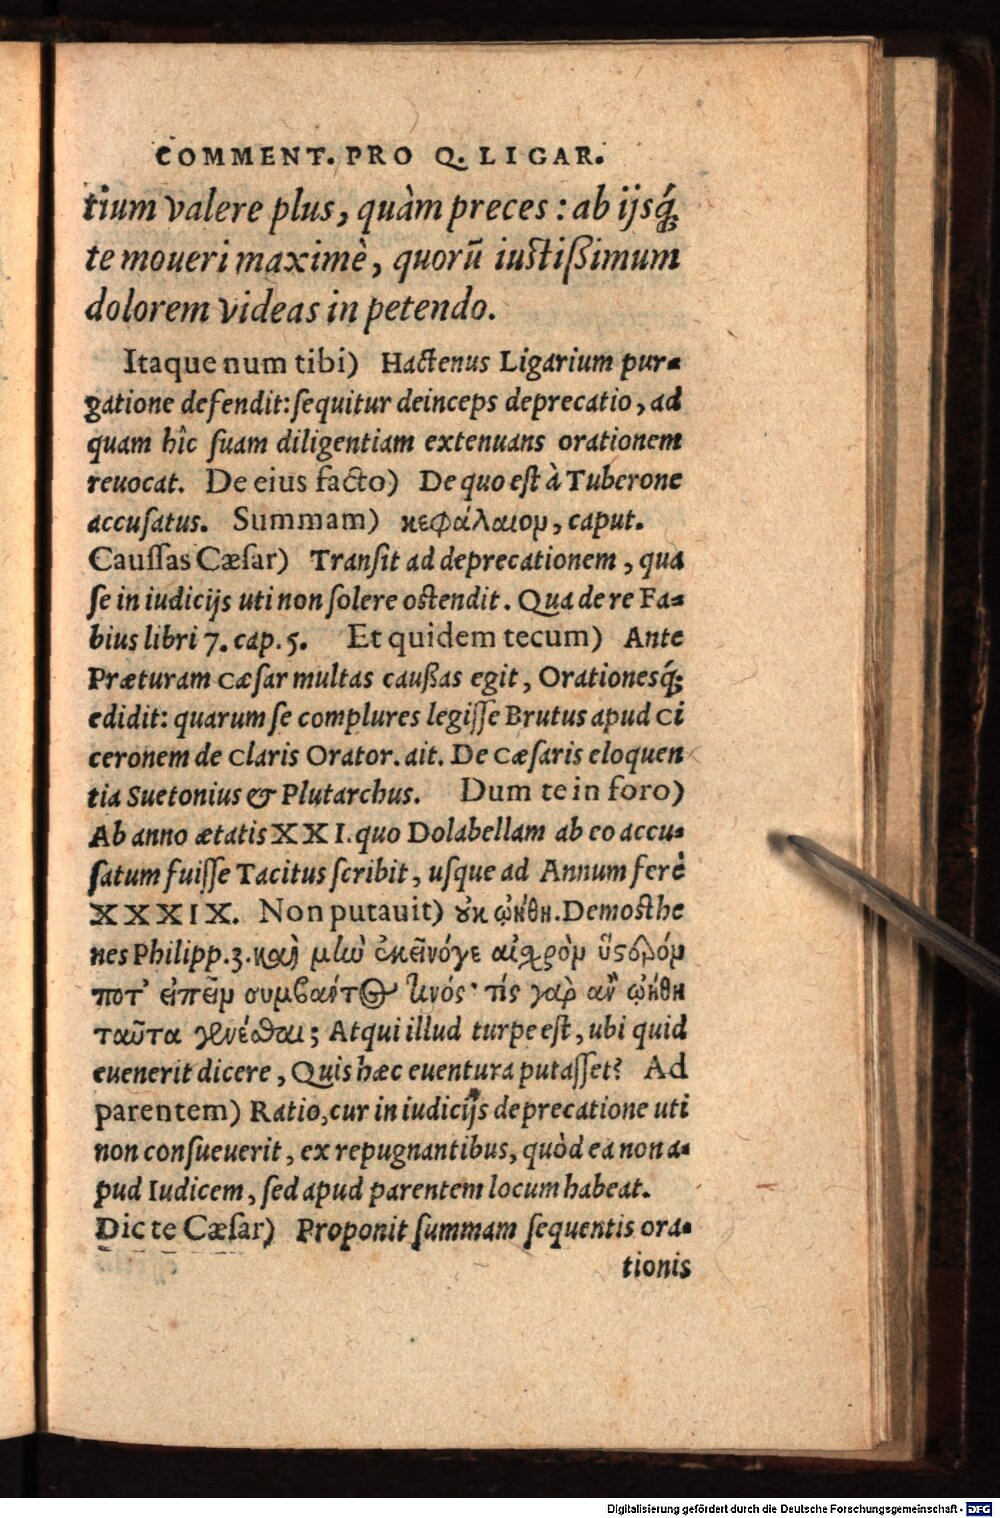 COMMENT. PRO Q. LIGAR.
tium valere plus, quàm preces: ab ijsq́;
te moueri maximè, quorũ iustißimum
dolorem videas in petendo.
Itaque num tibi) Hactenus Ligarium pur-
gatione defendit: ſequitur deinceps deprecatio, ad
quam hîc ſuam diligentiam extenuans orationem
reuocat. De eius facto) De quo eſt à Tuberone
accuſatus. Summam) κεφάλαιον, caput.
Cauſſas Cæſar) Tranſit ad deprecationem, qua
ſe in iudicijs uti non ſolere oſtendit. Qua de re Fa-
bius libri 7. cap. 5. Et quidem tecum) Ante
Præturam Cæſar multas caußas egit, Orationesq́;
edidit: quarum ſe complures legiſſe Brutus apud Ci
ceronem de Claris Orator. ait. De Cæſaris eloquen
tia Suetonius & Plutarchus. Dum te in foro)
Ab anno ætatis XXI. quo Dolabellam ab eo accu-
ſatum fuiſſe Tacitus ſcribit, uſque ad Annum ferè
XXXIX. Non putauit) ȣκ ᾠήθη. Demoſthe
nes Philipp. 3. καὶ μὴν ἐκεῖνόγε αἰσχρὸν ὕςερόν
ποτ' εἰπεῖν συμβάντος τινός· τίς γὰρ ἂν ᾠήθη
ταῦτα γενέσθαι; Atqui illud turpe eſt, ubi quid
euenerit dicere, Quis hæc euentura putaſſet? Ad
parentem) Ratio, cur in iudicijs deprecatione uti
non conſueuerit, ex repugnantibus, quòd ea non a-
pud Iudicem, ſed apud parentem locum habeat.
Dic te Cæſar) Proponit ſummam ſequentis ora-
tionis
Digitalisierung gefördert durch die Deutsche Forschungsgemeinschaft - DFG